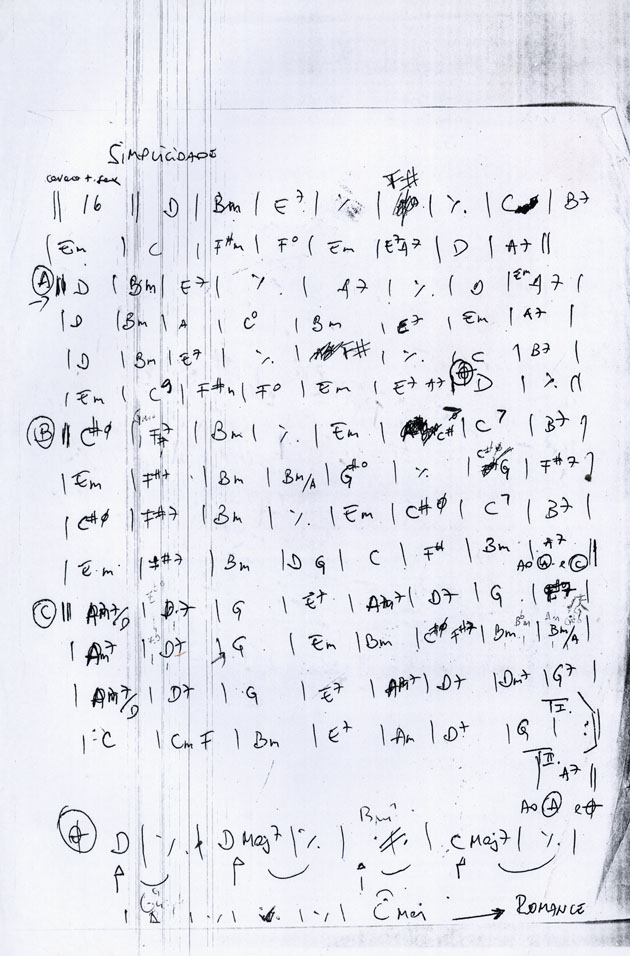 SIMPLICIDADE
cavaco + sax
F#
|| 16 || D | Bm | E7 | ٪ | | ٪ | C | B7
| Em | C | F#m | F° | Em | E7 A7 | D | A7 ||
Ⓐ || D | Bm | E7 | ٪ | A7 | ٪ | D | Em A7 |
| D | Bm | A | C° | Bm | E7 | Em | A7 |
| D | Bm | E7 | ٪ | F# | ٪ | C | B7 |
| Em | C9 | F#m | F° | Em | E7 A7 | D | ٪ ||
Ⓑ || C#ø | F#7 | Bm | ٪ | Em | C# | C7 | B7 |
| Em | F#7 | Bm | Bm/A | G#° | ٪ | C#ø G | F#7 |
| C#ø | F#7 | Bm | ٪ | Em | C#ø | C7 | B7 |
| Em | F#7 | Bm | D G | C | F# | Bm | A7 ||
AO Ⓐ e Ⓒ
Ⓒ || Am7/D | D7 | G | E7 | Am7 | D7 | G |
| Am7 | D7 | G | Em | Bm | C#ø F#7 | Bm | Bm/A |
| Am7/D | D7 | G | E7 | Am7 | D7 | Dm7 | G7 |
| C | Cm F | Bm | E7 | Am | D7 | G | I. :||
II. A7 ||
AO Ⓐ e ⊕
Bm7
⊕ D | ٪ | D Maj7 | ٪ | | C Maj7 | ٪ |
| ٪ | ٪ | C Maj → ROMANCE